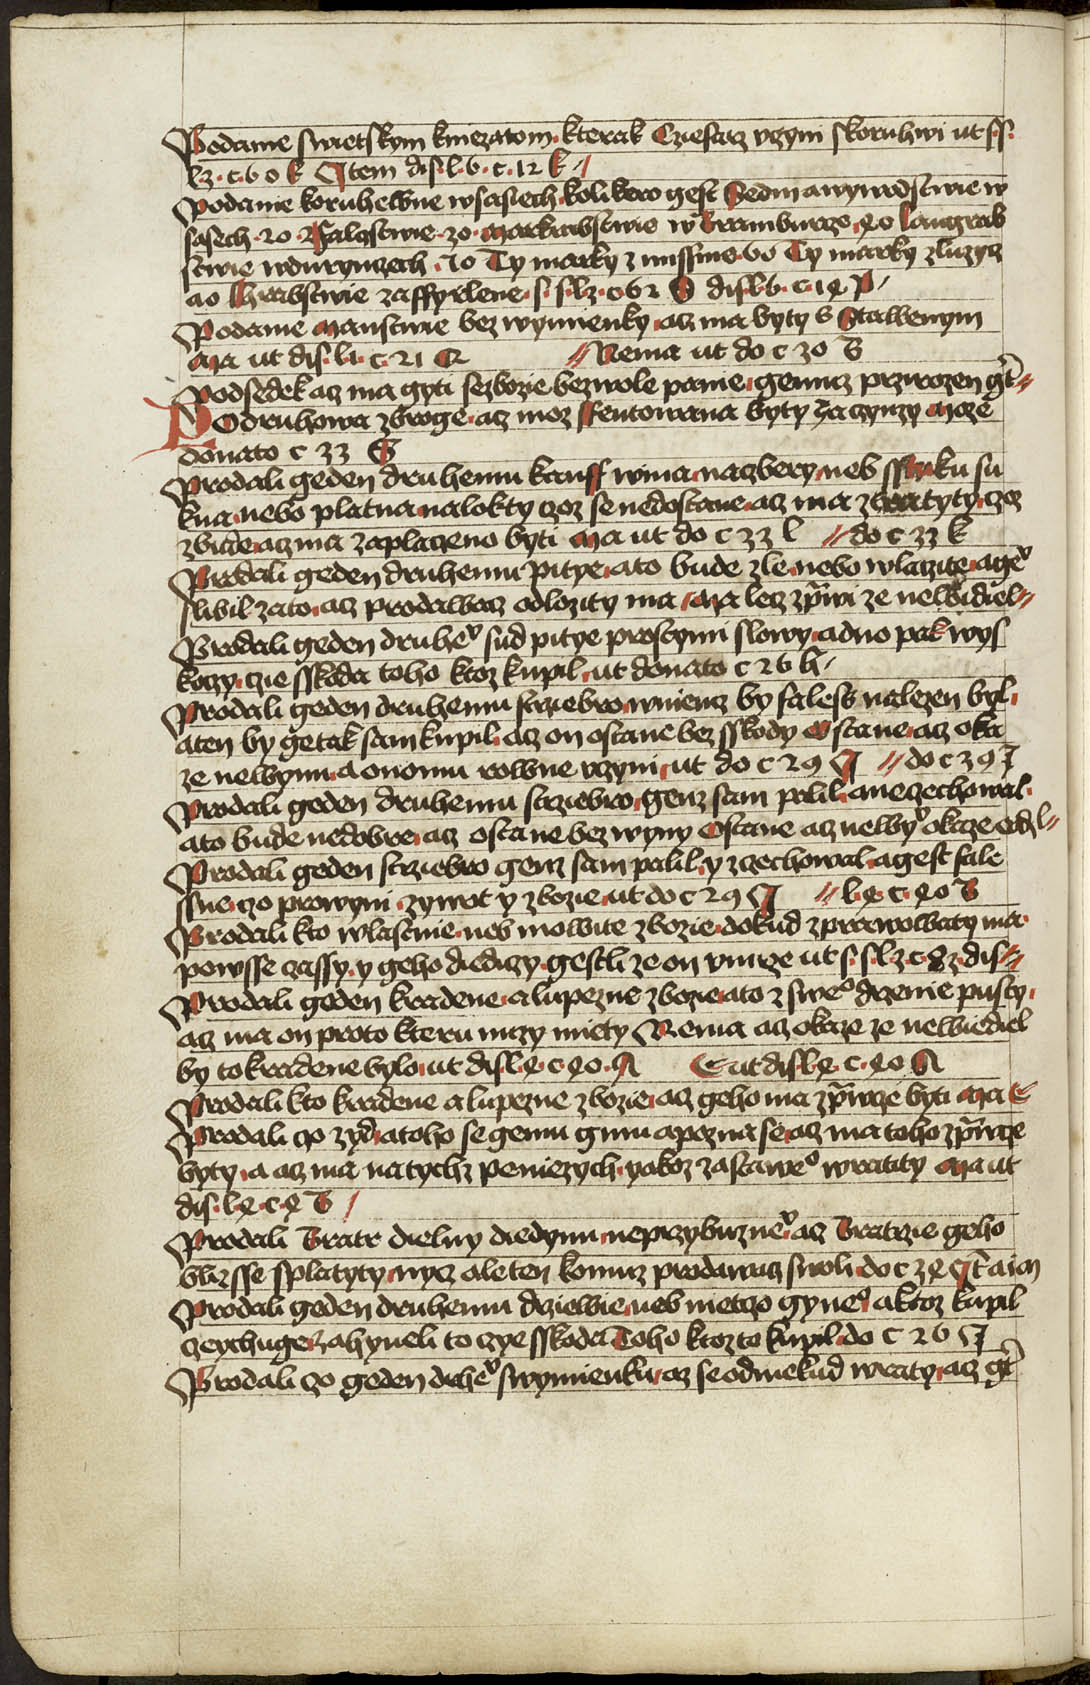 Podanie swietskym kniezatom kterak Cziesarz vczyni skoruhwi ut s s
lz c 60 k Item dis l 6 c 12 k
Podanie koruhebne wsasiech kolikero gest Sedm a wywodstwie w
sasech 20 ffalczstwie 30 Markrabstwie w Bramburcze 40 langrab
stwie wdurynczech 70 Ty marky z missnie 60 Ty marky zluzycz
ao hrabstwie zaffyrlene s s lz c 62 dis l 6 c 14 p
Podanie manstwie bez wymienky acz ma byty s Stawenym
Ma ut dis l1 c 21 Nema ut do c 30 B
Podsedek acz ma gyti sezbozie bezwole panie gemuz przirozen gt
POdruhowa zbroge acz moz ffentowana byty za czynzy Moze
donato c 33 G
Prodali geden druhemu kauff wina naczbery neb sstuku su
kna nebo platna nalokty czoz se nedostane acz ma zwratyty czoz
zbude acz ma zaplaczeno byti Ma ut do c 33 l do c 33 k
Prodali geden druhemu pitye ato bude zle nebo wlaczite a ge
slibil zato acz prodawacz odlozity ma Ma lecz zprawi ze newidiel
Prodali geden druhe sud pitye prostymi slowy a dno pak wys
koczy czie sskoda toho ktoz kupil ut donato c 26 h
Prodali geden druhemu strziebro wniemz by faless nalezen byl
aten by ge tak sam kupil acz on ostane bez sskody Ostane acz oka
ze newynu a onomu rowne vczyni ut do c 29 do c 39 J
Prodali geden druhemu strziebro genz sam palil a neczechowal
ato bude nedobre acz ostane bez wyny Ostane acz newy okaze
Prodali geden strziebro genz sam palil y zczechowal a gest fale
ssne czo prowyni zywot y zbozie ut do c 29 l 4 c 40 B
Prodali kto wlastnie neb mowite zbozie dokud zprawowaty ma
powsse czassy y geho diediczy gestli ze on vmrze ut s s lz c 83 dis
Prodali geden kradene a lupezne zbozie ato z swe drzenie pusty
acz ma on proto kteru niczy miety Nema acz okaze ze newiediel
by to kradene bylo ut dis l 4 c 40 A E ut dis l 4 c 40 A
Prodali kto kradene a lupezne zbozie acz geho ma zprawcze byti Ma E
Prodali czo zyd atoho se gemu gmu a pozna se acz ma toho zprawcze
byty a acz ma na tychz peniezych yakoz zastawe wratity Ma ut
dis l 4 c 4 B
Prodali Bratr dielny diedynu neprzybuzne acz Bratrzie geho
blizsse splatyty nycz ale ten komuz prodawacz swoli do c 34
Prodali geden druhemu drziewie neb nietczo gyne a ktoz kupil
czeychuge zahyneli to czye sskoda Toho ktoz to kupil do c 26 J
Prodali czo geden druhe swymienku acz se odniekud wraty acz gt